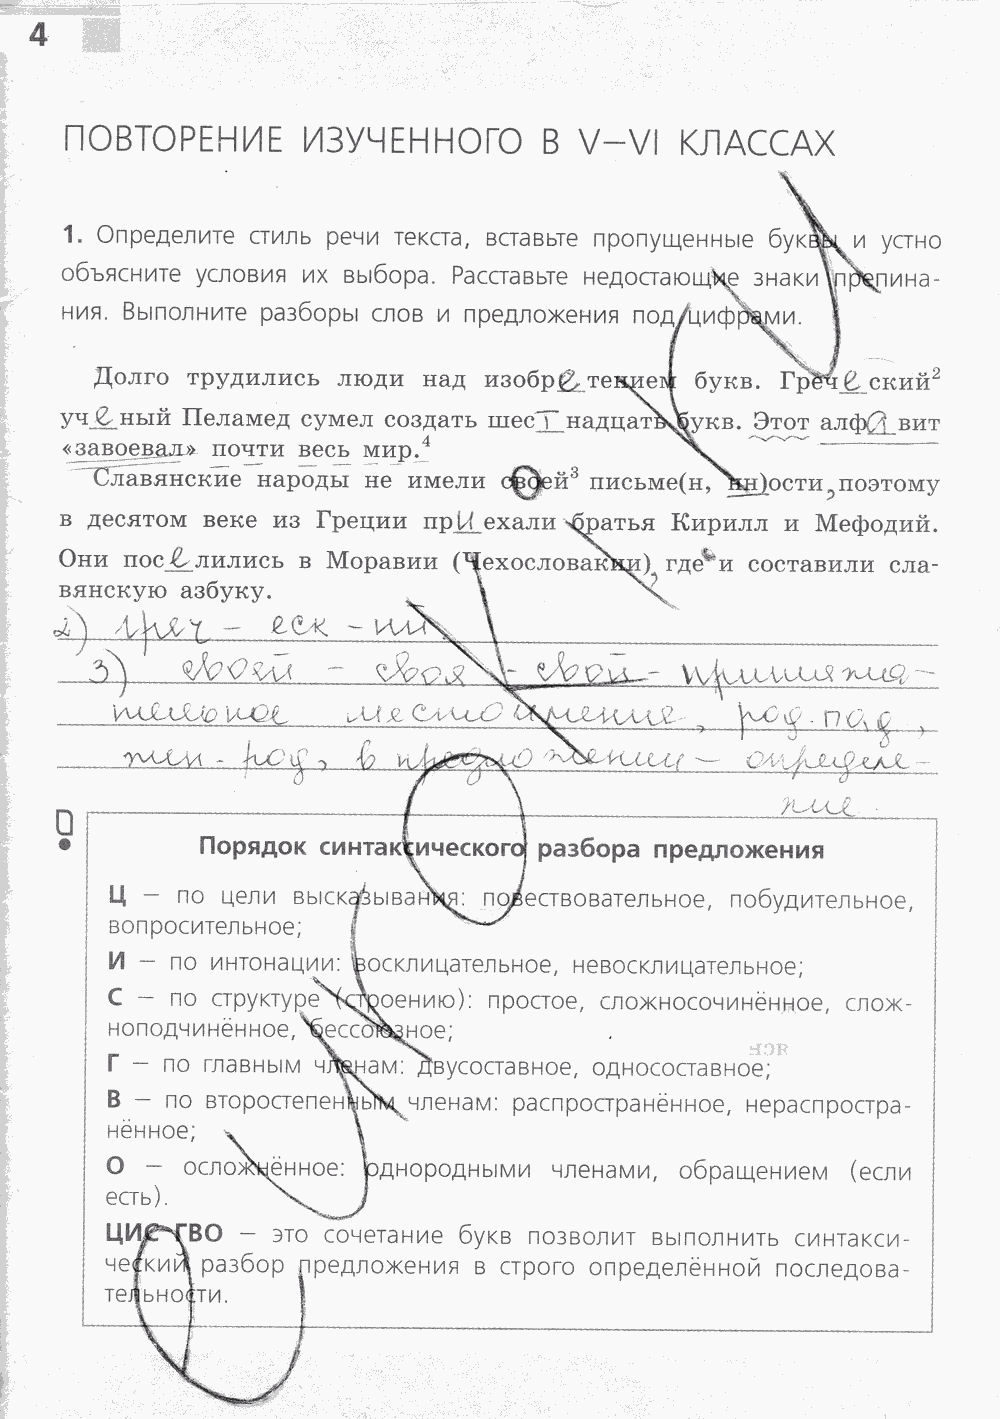 4
ПОВТОРЕНИЕ ИЗУЧЕННОГО В V—VI КЛАССАХ
1. Определите стиль речи текста, вставьте пропущенные буквы и устно
объясните условия их выбора. Расставьте недостающие знаки препина-
ния. Выполните разборы слов и предложения под цифрами.
Долго трудились люди над изобретением букв. Греческий²
ученый Пеламед сумел создать шестнадцать букв. Этот алфавит
«завоевал» почти весь мир.⁴
Славянские народы не имели своей³ письме(н, нн)ости, поэтому
в десятом веке из Греции приехали братья Кирилл и Мефодий.
Они поселились в Моравии (Чехословакии), где и составили сла-
вянскую азбуку.
2) греч - еск - ий
3) своей - своя - свой - притяжа-
тельное местоимение, род. пад.,
жен. род, в предложении - определе-
ние.
Порядок синтаксического разбора предложения
Ц — по цели высказывания: повествовательное, побудительное,
вопросительное;
И — по интонации: восклицательное, невосклицательное;
С — по структуре (строению): простое, сложносочинённое, слож-
ноподчинённое, бессоюзное;
Г — по главным членам: двусоставное, односоставное;
В — по второстепенным членам: распространённое, нераспростра-
нённое;
О — осложнённое: однородными членами, обращением (если
есть).
ЦИС ГВО — это сочетание букв позволит выполнить синтакси-
ческий разбор предложения в строго определённой последова-
тельности.